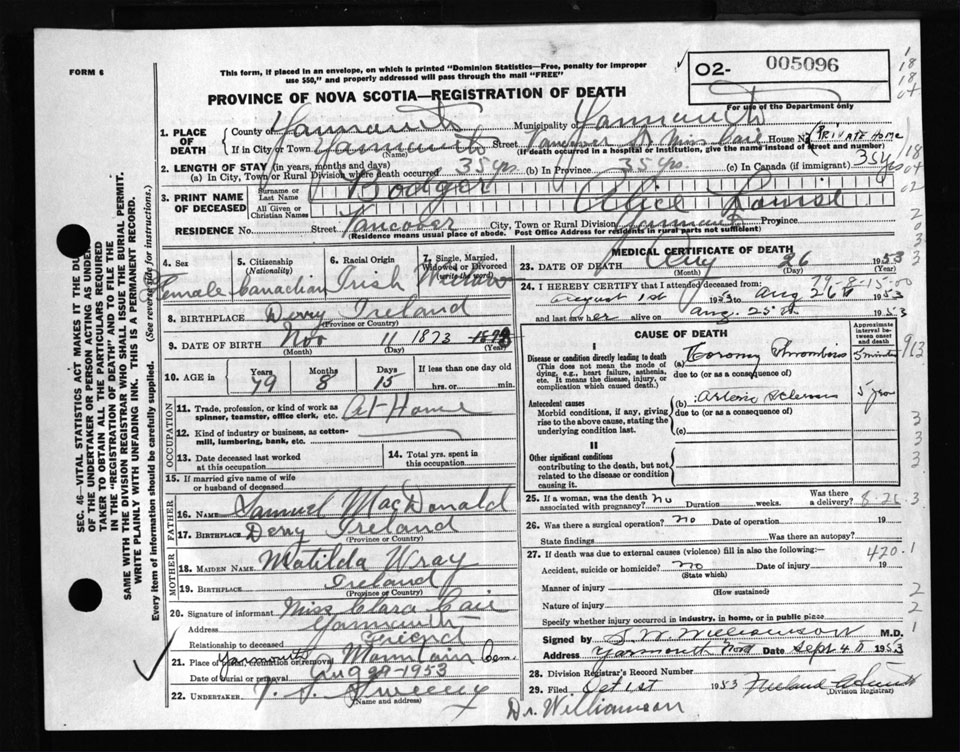 FORM 6
This form, if placed in an envelope, on which is printed "Dominion Statistics—Free, penalty for improper
use $50," and properly addressed will pass through the mail "FREE"
02- 005096
For use of the Department only
PROVINCE OF NOVA SCOTIA—REGISTRATION OF DEATH
1. PLACE OF DEATH
County of Yarmouth Municipality of Yarmouth
If in City or Town Yarmouth (Name) Street House No. (PRIVATE HOME
(If death occurred in a hospital or institution, give name instead of street and number)
2. LENGTH OF STAY (in years, months and days)
(a) In City, Town or Rural Division where death occurred 35 yrs (b) In Province 35 yrs. (c) In Canada (if immigrant) 35 yrs
3. PRINT NAME OF DECEASED
Surname or Last Name Bodger
All Given or Christian Names Alice Louise
RESIDENCE No. Street Vancover City, Town or Rural Division Yarmouth Province
(Residence means usual place of abode. Post Office Address for residents in rural parts not sufficient)
4. Sex Female
5. Citizenship (Nationality) Canadian
6. Racial Origin Irish
7. Single, Married, Widowed or Divorced (write the word) Widow
8. BIRTHPLACE Derry Ireland
(Province or Country)
9. DATE OF BIRTH Nov 11 1873
(Month) (Day) (Year)
10. AGE in Years 79 Months 8 Days 15 If less than one day old
hrs. or min.
OCCUPATION
11. Trade, profession, or kind of work as spinner, teamster, office clerk, etc. At Home
12. Kind of industry or business, as cotton-mill, lumbering, bank, etc.
13. Date deceased last worked at this occupation
14. Total yrs. spent in this occupation
15. If married give name of wife or husband of deceased
FATHER
16. NAME Samuel MacDonald
17. BIRTHPLACE Derry Ireland
(Province or Country)
MOTHER
18. MAIDEN NAME Matilda Wray
19. BIRTHPLACE Ireland
(Province or Country)
20. Signature of informant Miss Clara Cain
Address Yarmouth
Relationship to deceased Friend
21. Place of burial, cremation or removal Yarmouth Mountain Cem.
Date of burial or removal 1953
22. UNDERTAKER Sweeny
(Name and address)
MEDICAL CERTIFICATE OF DEATH
23. DATE OF DEATH Aug 26 1953
(Month) (Day) (Year)
79-8-15-00
24. I HEREBY CERTIFY that I attended deceased from:
August 1st 1953 to Aug 26th 1953
and last saw her alive on Aug. 25th 1953
CAUSE OF DEATH
Approximate interval between onset and death
I
Disease or condition directly leading to death
(This does not mean the mode of dying, e.g., heart failure, asthenia, etc. It means the disease, injury, or complication which caused death.)
(a) Coronary Thrombosis 5 minutes
due to (or as a consequence of)
Antecedent causes
Morbid conditions, if any, giving rise to the above cause, stating the underlying condition last.
(b) Arterio Sclerosis 5 yrs
due to (or as a consequence of)
(c)
II
Other significant conditions
contributing to the death, but not related to the disease or condition causing it.
25. If a woman, was the death associated with pregnancy? no Duration weeks. Was there a delivery?
26. Was there a surgical operation? no Date of operation 19
State findings Was there an autopsy?
27. If death was due to external causes (violence) fill in also the following:— 420.1
Accident, suicide or homicide? no Date of injury 19
(State which)
Manner of injury
(How sustained)
Nature of injury
Specify whether injury occurred in industry, in home, or in public place
Signed by S. W. Williamson M.D.
Address Yarmouth Date Sept 4th 1953
28. Division Registrar's Record Number
29. Filed Oct 1st 1953
(Division Registrar)
Dr. Williamson
SEC. 46—VITAL STATISTICS ACT MAKES IT THE DU
OF THE UNDERTAKER OR PERSON ACTING AS UNDER
TAKER TO OBTAIN ALL THE PARTICULARS REQUIRED
IN THE "REGISTRATION OF DEATH" AND TO FILE THE
SAME WITH THE DIVISION REGISTRAR WHO SHALL ISSUE THE BURIAL PERMIT.
WRITE PLAINLY WITH UNFADING INK. THIS IS A PERMANENT RECORD.
Every item of information should be carefully supplied. (See reverse side for instructions.)